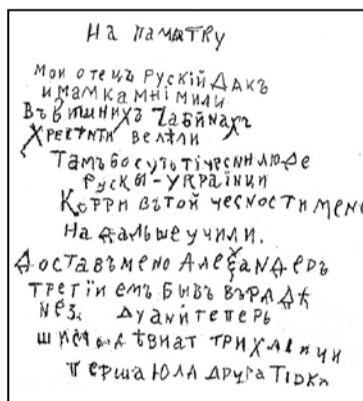 На памѧтку
Мои отецъ Рускій Дакъ
и мамка мні мили
Въ вишнихъ Чабинахъ
Хрестити велѣли
Тамъ бо сутъ ті чесни люде
Рускы-Українци
Котри въ той чесности мене
На дальше учили.
Доставъ мено Алеѯандеръ
третіи емъ бывъ въ рядѣ
теперь
три хлапци
перша Юла друга Тірка